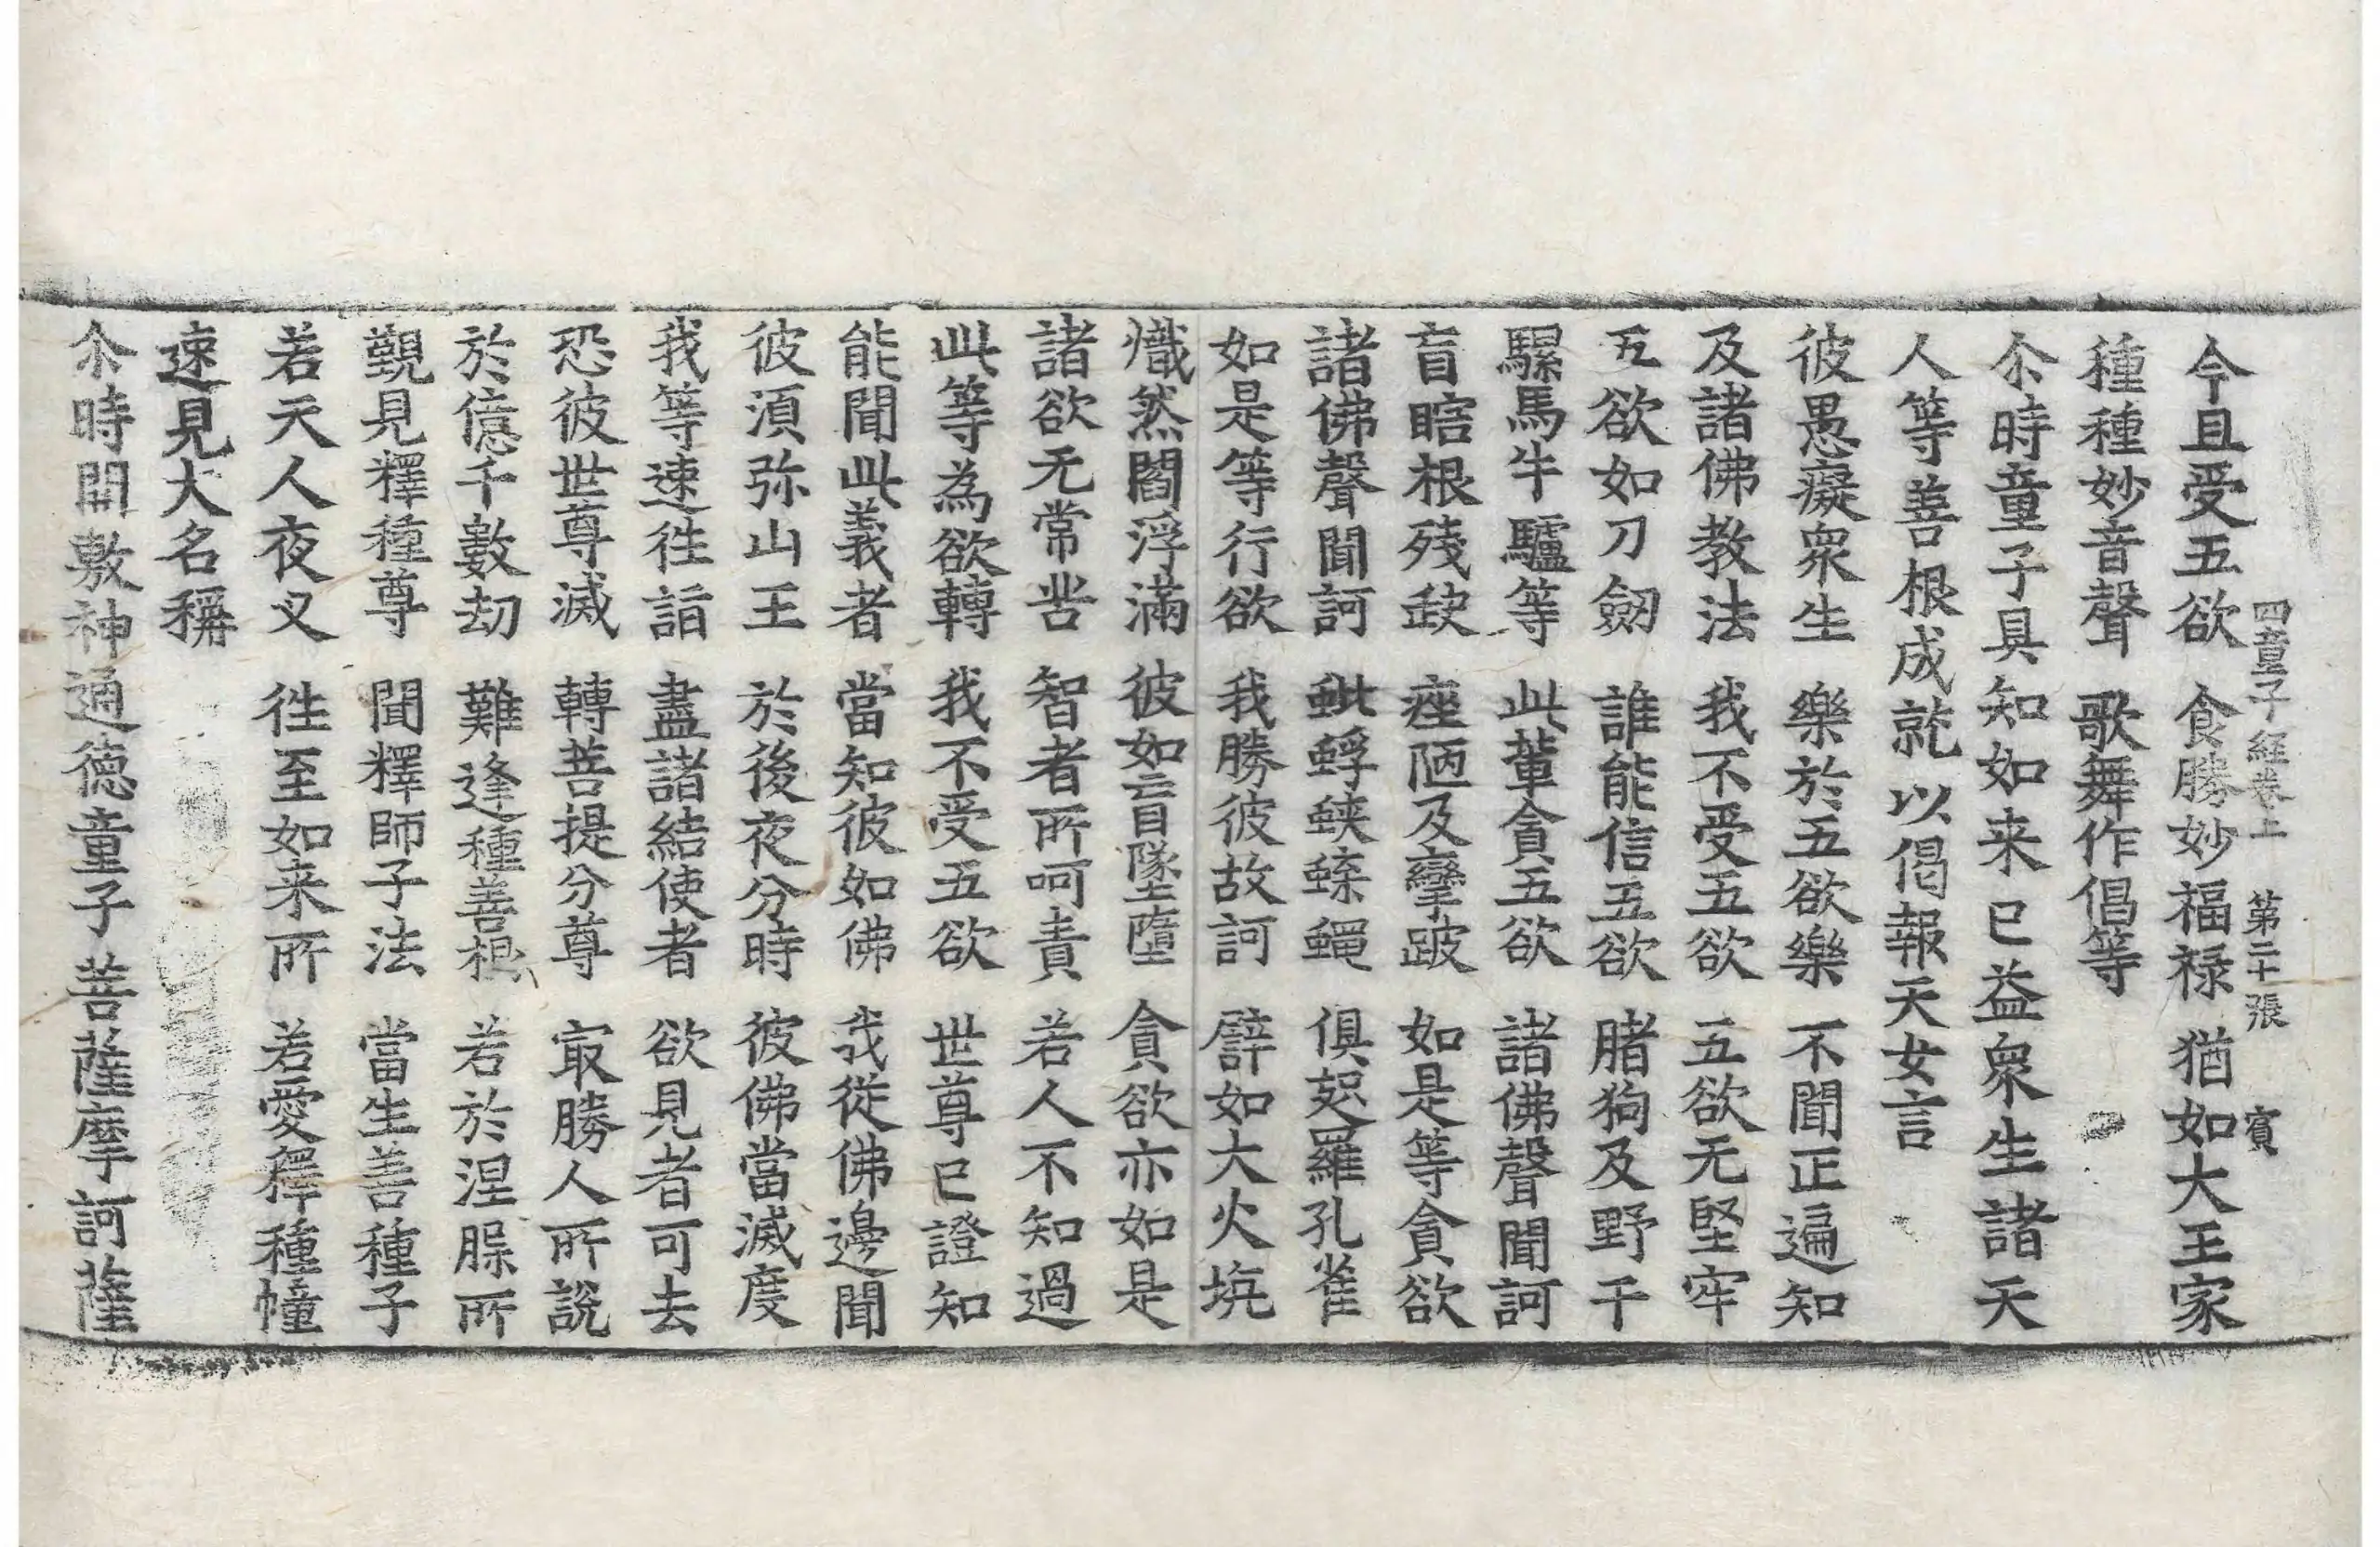 四童子經卷上 第二十張 賓
今且受五欲 食勝妙福禄 猶如大王家
種種妙音聲 歌舞作倡等
尒時童子具知如来已益衆生諸天
人等善根成就以偈報天女言
彼愚癡衆生 樂於五欲樂 不聞正遍知
及諸佛教法 我不受五欲 五欲无堅牢
五欲如刀劒 誰能信五欲 腊狗及野干
騾馬牛驢等 此輩貪五欲 諸佛聲聞訶
盲瞎根殘𡙇 痤陋及攣跛 如是等貪欲
諸佛聲聞訶 蚍蜉蛺蝶蠅 俱翅羅孔雀
如是等行欲 我勝彼故訶 譬如大火坑
熾然閻浮滿 彼如盲墜墮 貪欲亦如是
諸欲无常苦 智者所呵責 若人不知過
此等為欲轉 我不受五欲 世尊已證知
能聞此義者 當知彼如佛 我從佛邊聞
彼湏弥山王 於後夜分時 彼佛當滅度
我等速往詣 盡諸結使者 欲見者可去
恐彼世尊滅 轉菩提分尊 㝡勝人所說
於億千數劫 難逢種善根 若於涅䏶所
覲見釋種尊 聞釋師子法 當生善種子
若天人夜叉 往至如来所 若愛釋種幢
速見大名稱
尒時開敷神通德童子菩薩摩訶薩